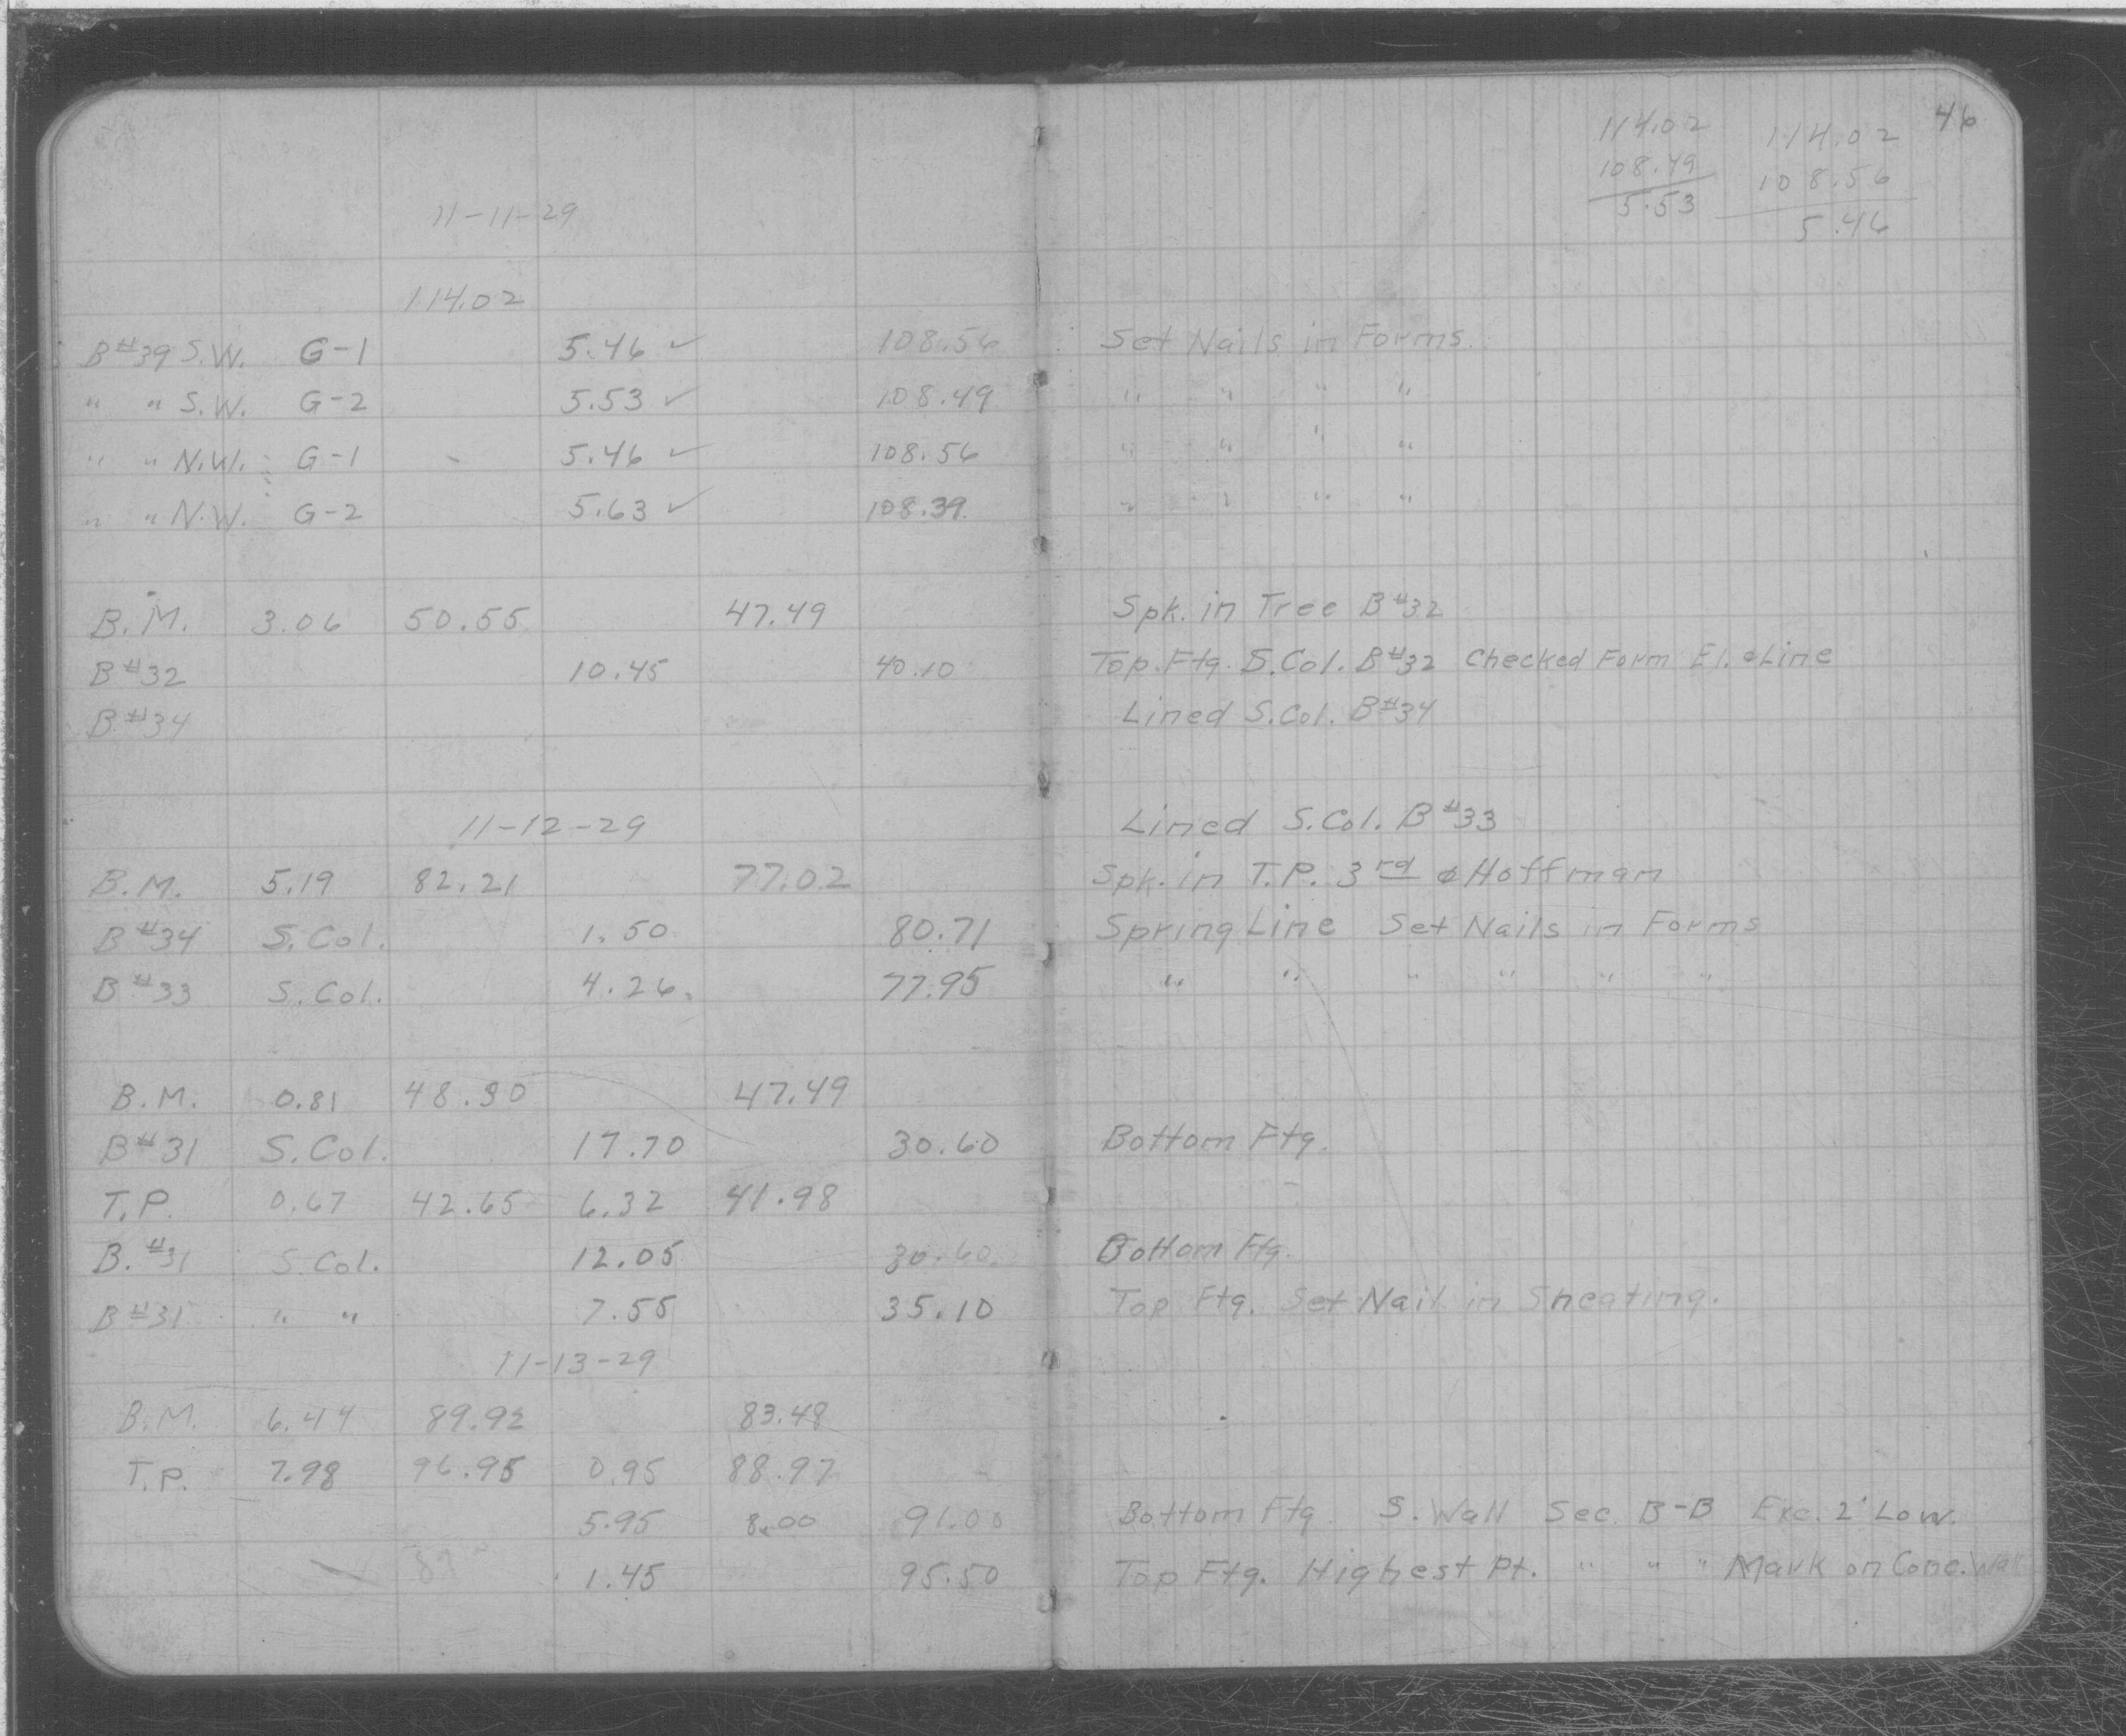 46
114.02 114.02
108.49 108.56
5.53 5.46
11-11-29
114.02
B#39 S.W. G-1 5.46 ✓ 108.56 Set Nails in Forms.
" " S.W. G-2 5.53 ✓ 108.49 " " " "
" " N.W. G-1 - 5.46 ✓ 108.56 " " " "
" " N.W. G-2 5.63 ✓ 108.39 " " " "
B.M. 3.06 50.55 47.49 Spk. in Tree B#32
B#32 10.45 40.10 Top Ftg. S.Col. B#32 Checked Form El. & Line
B#34 Lined S.Col. B#34
11-12-29 Lined S.Col. B#33
B.M. 5.19 82.21 77.02 Spk. in T.P. 3rd & Hoffman
B#34 S.Col. 1.50 80.71 Spring Line Set Nails in Forms
B#33 S.Col. 4.26 77.95 " " " " " "
B.M. 0.81 48.30 47.49
B#31 S.Col. 17.70 30.60 Bottom Ftg.
T.P. 0.67 42.65 6.32 41.98
B.#31 S.Col. 12.05 30.60 Bottom Ftg.
B#31 " " 7.55 35.10 Top Ftg. Set Nail in Sheating.
11-13-29
B.M. 6.44 89.92 83.48
T.P. 7.98 96.95 0.95 88.97
5.95 8.00 91.00 Bottom Ftg. S. Wall Sec. B-B Exc. 2' Low.
1.45 95.50 Top Ftg. Highest Pt. " " " Mark on Conc. Wall